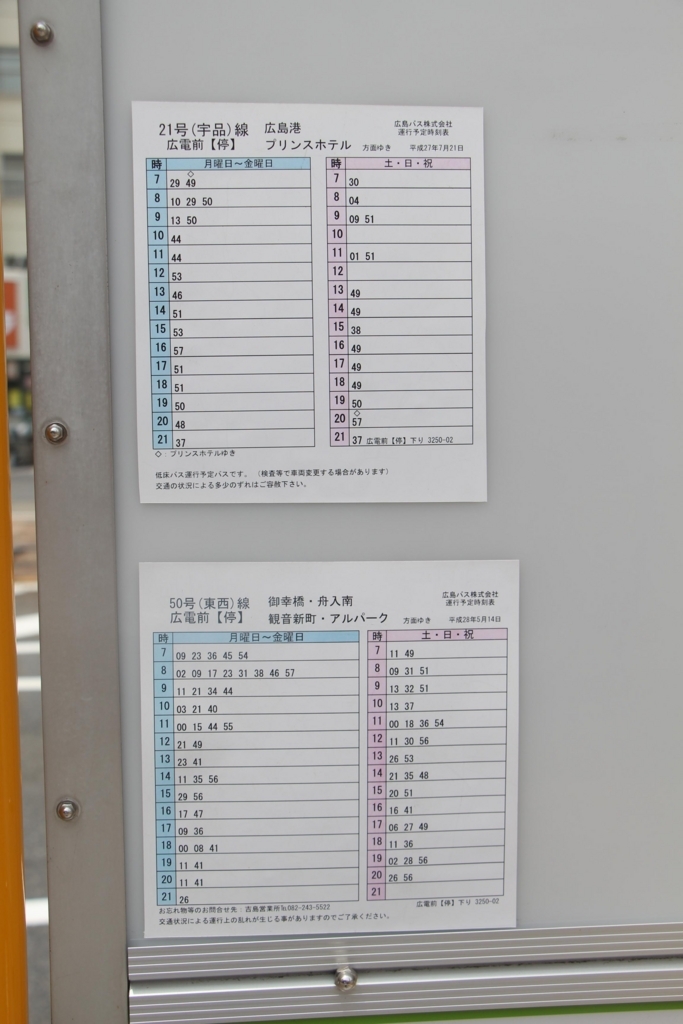 21号(宇品)線 広島港 広島バス株式会社
運行予定時刻表
広電前【停】 プリンスホテル 方面ゆき 平成27年7月21日
時 月曜日～金曜日 時 土・日・祝
◇
7 29 49 7 30
8 10 29 50 8 04
9 13 50 9 09 51
10 44 10
11 44 11 01 51
12 53 12
13 46 13 49
14 51 14 49
15 53 15 38
16 57 16 49
17 51 17 49
18 51 18 49
19 50 19 50
◇
20 48 20 57
21 37 21 37 広電前【停】下り 3250-02
◇: プリンスホテルゆき
低床バス運行予定バスです。 (検査等で車両変更する場合があります)
交通の状況による多少のずれはご容赦下さい。
50号(東西)線 御幸橋・舟入南 広島バス株式会社
運行予定時刻表
広電前【停】 観音新町・アルパーク 方面ゆき 平成28年5月14日
時 月曜日～金曜日 時 土・日・祝
7 09 23 36 45 54 7 11 49
8 02 09 17 23 31 38 46 57 8 09 31 51
9 11 21 34 44 9 13 32 51
10 03 21 40 10 13 37
11 00 15 44 55 11 00 18 36 54
12 21 49 12 11 30 56
13 23 41 13 26 53
14 11 35 56 14 21 35 48
15 29 56 15 20 51
16 17 47 16 16 41
17 09 36 17 06 27 49
18 00 08 41 18 11 36
19 11 41 19 02 28 56
20 11 41 20 26 56
21 26 21
お忘れ物等のお問合せ先: 吉島営業所℡082-243-5522 広電前【停】下り 3250-02
交通状況による運行上の乱れが生じる事がありますのでご了承ください。